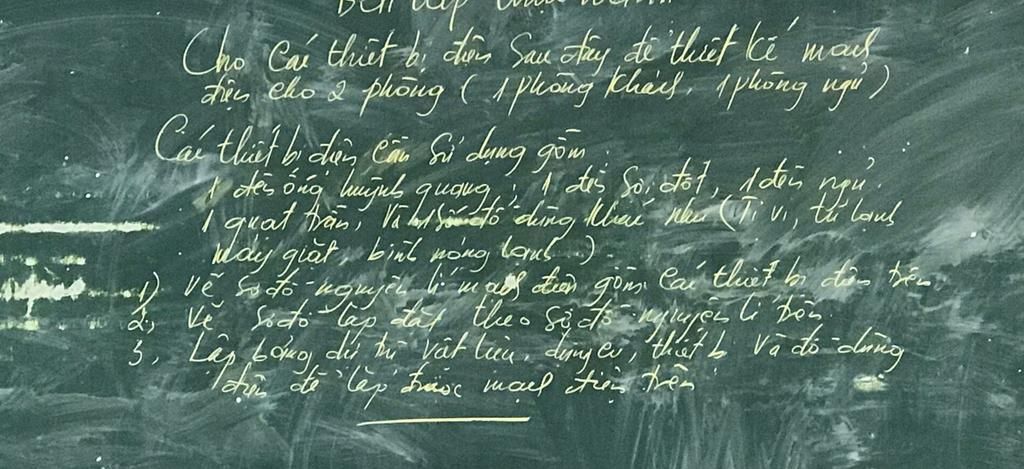 Cho các thiết bị điện sau đây để thiết kế mạch
điện cho 2 phòng ( 1 phòng khách, 1 phòng ngủ )
Các thiết bị điện cần sử dụng gồm
1 đèn ống huỳnh quang, 1 đèn sợi đốt, 1 đèn ngủ.
1 quạt trần, và 1 số đồ dùng khác như ( Ti vi, tủ lạnh
máy giặt, bình nóng lạnh )
1) Vẽ sơ đồ nguyên lí mạch điện gồm các thiết bị điện trên
2, Vẽ sơ đồ lắp đặt theo sơ đồ nguyên lí trên.
3, Lập bảng dự trù vật liệu, dụng cụ, thiết bị và đồ dùng
điện để lắp được mạch điện trên